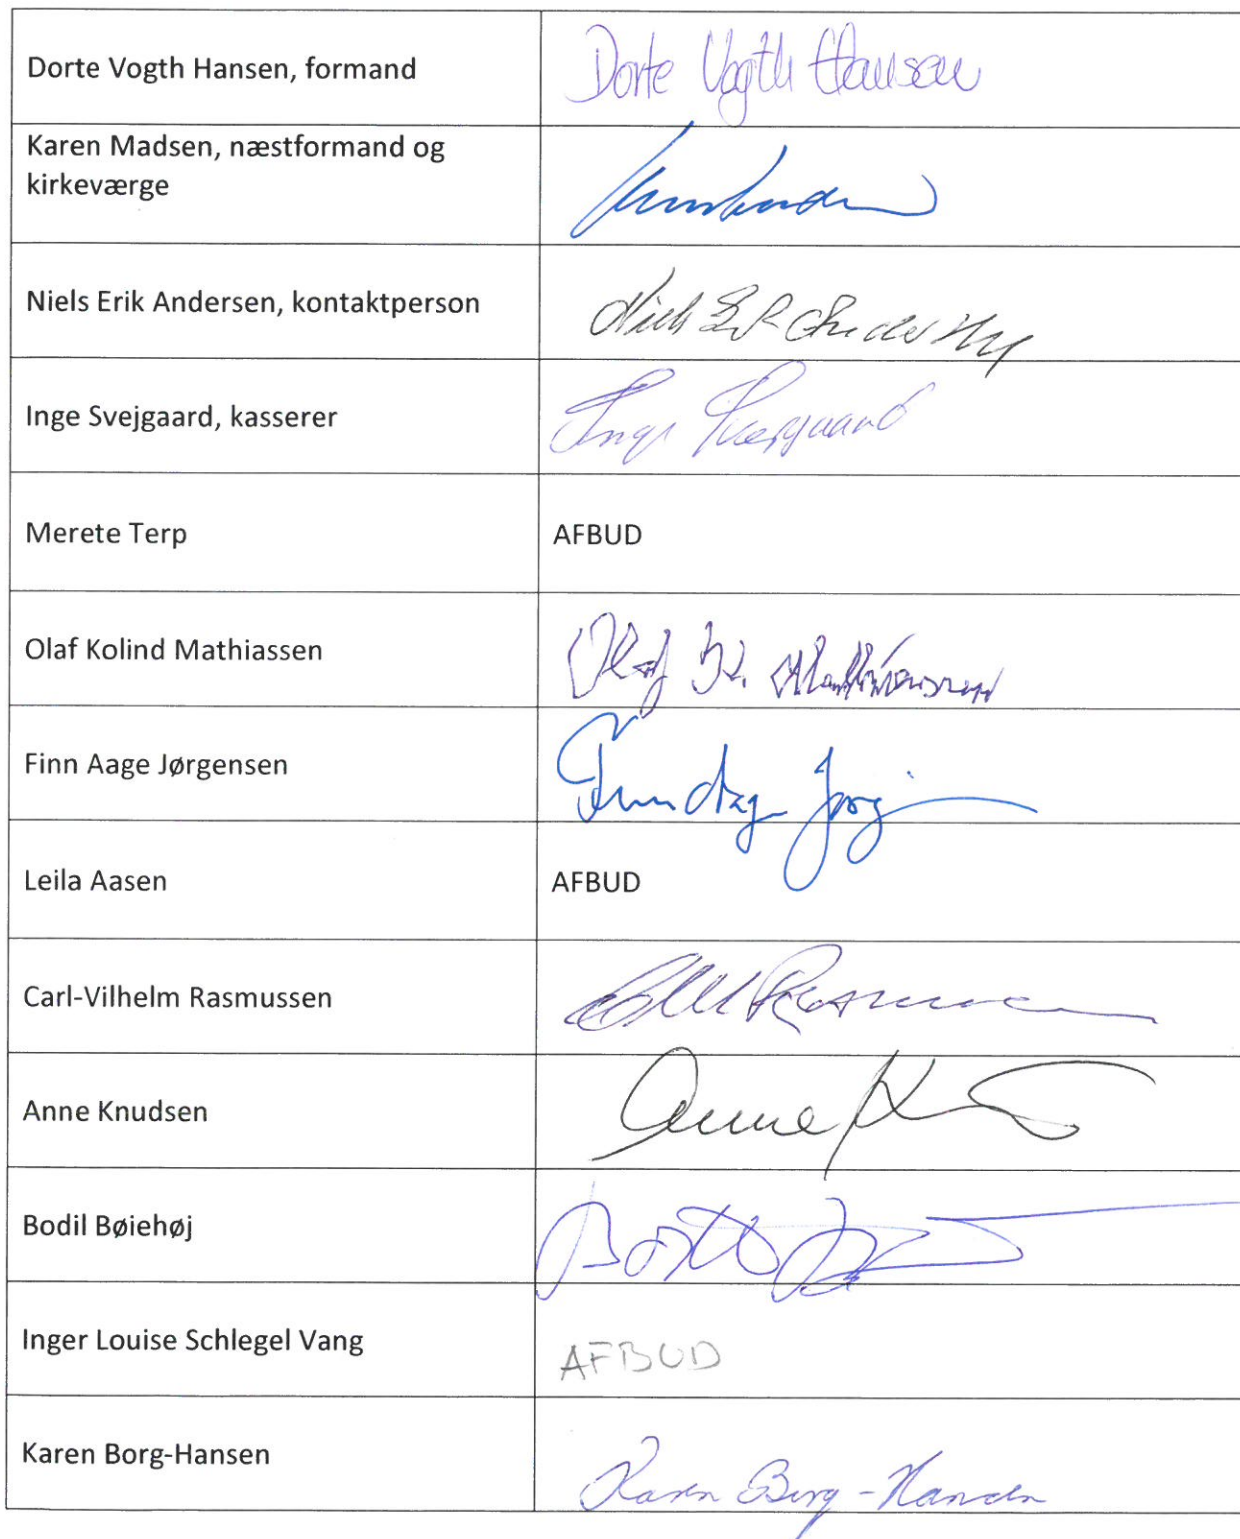 Dorte Vogth Hansen, formand
Dorte Vogth Hansen
Karen Madsen, næstformand og
kirkeværge
Niels Erik Andersen, kontaktperson
Niels Erik Andersen
Inge Svejgaard, kasserer
Inge Svejgaard
Merete Terp
AFBUD
Olaf Kolind Mathiassen
Olaf K. Mathiassen
Finn Aage Jørgensen
Finn Aage Jørg
Leila Aasen
AFBUD
Carl-Vilhelm Rasmussen
Rasmussen
Anne Knudsen
Anne
Bodil Bøiehøj
Inger Louise Schlegel Vang
AFBUD
Karen Borg-Hansen
Karen Borg-Hansen